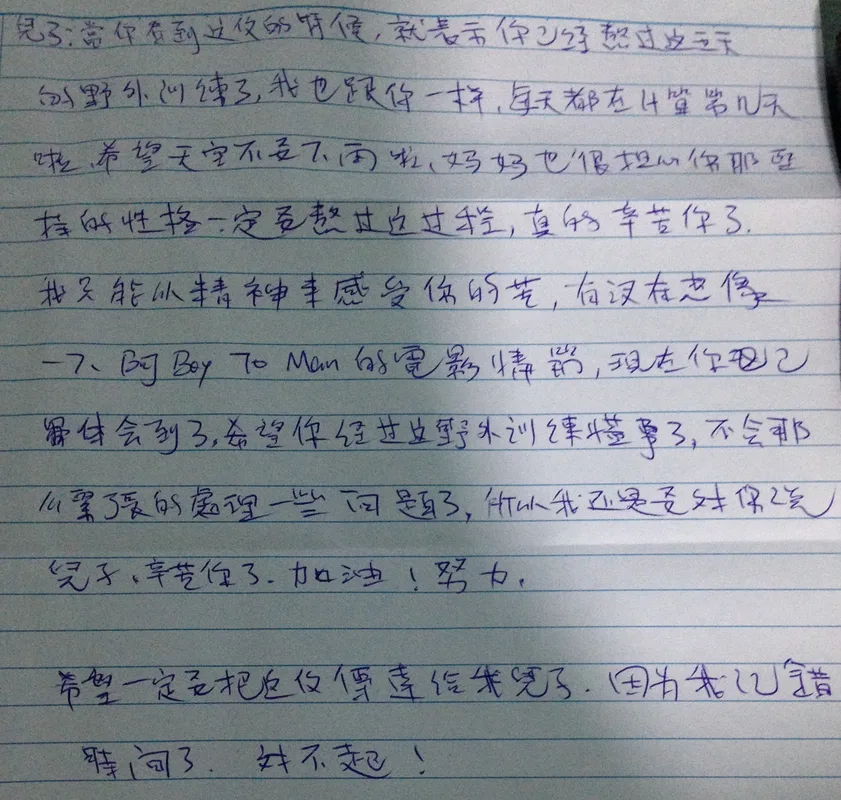 兒子:當你看到这仪的時候,就表示你已经熬过这五天
的野外训練了,我也跟你一样,每天都在计算第几天
啦、希望天空不要下雨啦、妈妈也很担心你那
样的性格一定要熬过这过程,真的辛苦你了.
我只能从精神来感受你的苦,有没有想像
一下、阿Boy To Man 的電影情節,現在你
体会到了,希望你经过这野外训練懂事了,不会那
么緊張的處理一些问題了,所以我还是要对你说
兒子、辛苦你了.加油!努力.
希望一定要把这仪傳達给我兒子.因为我记錯
時间了. 对不起!